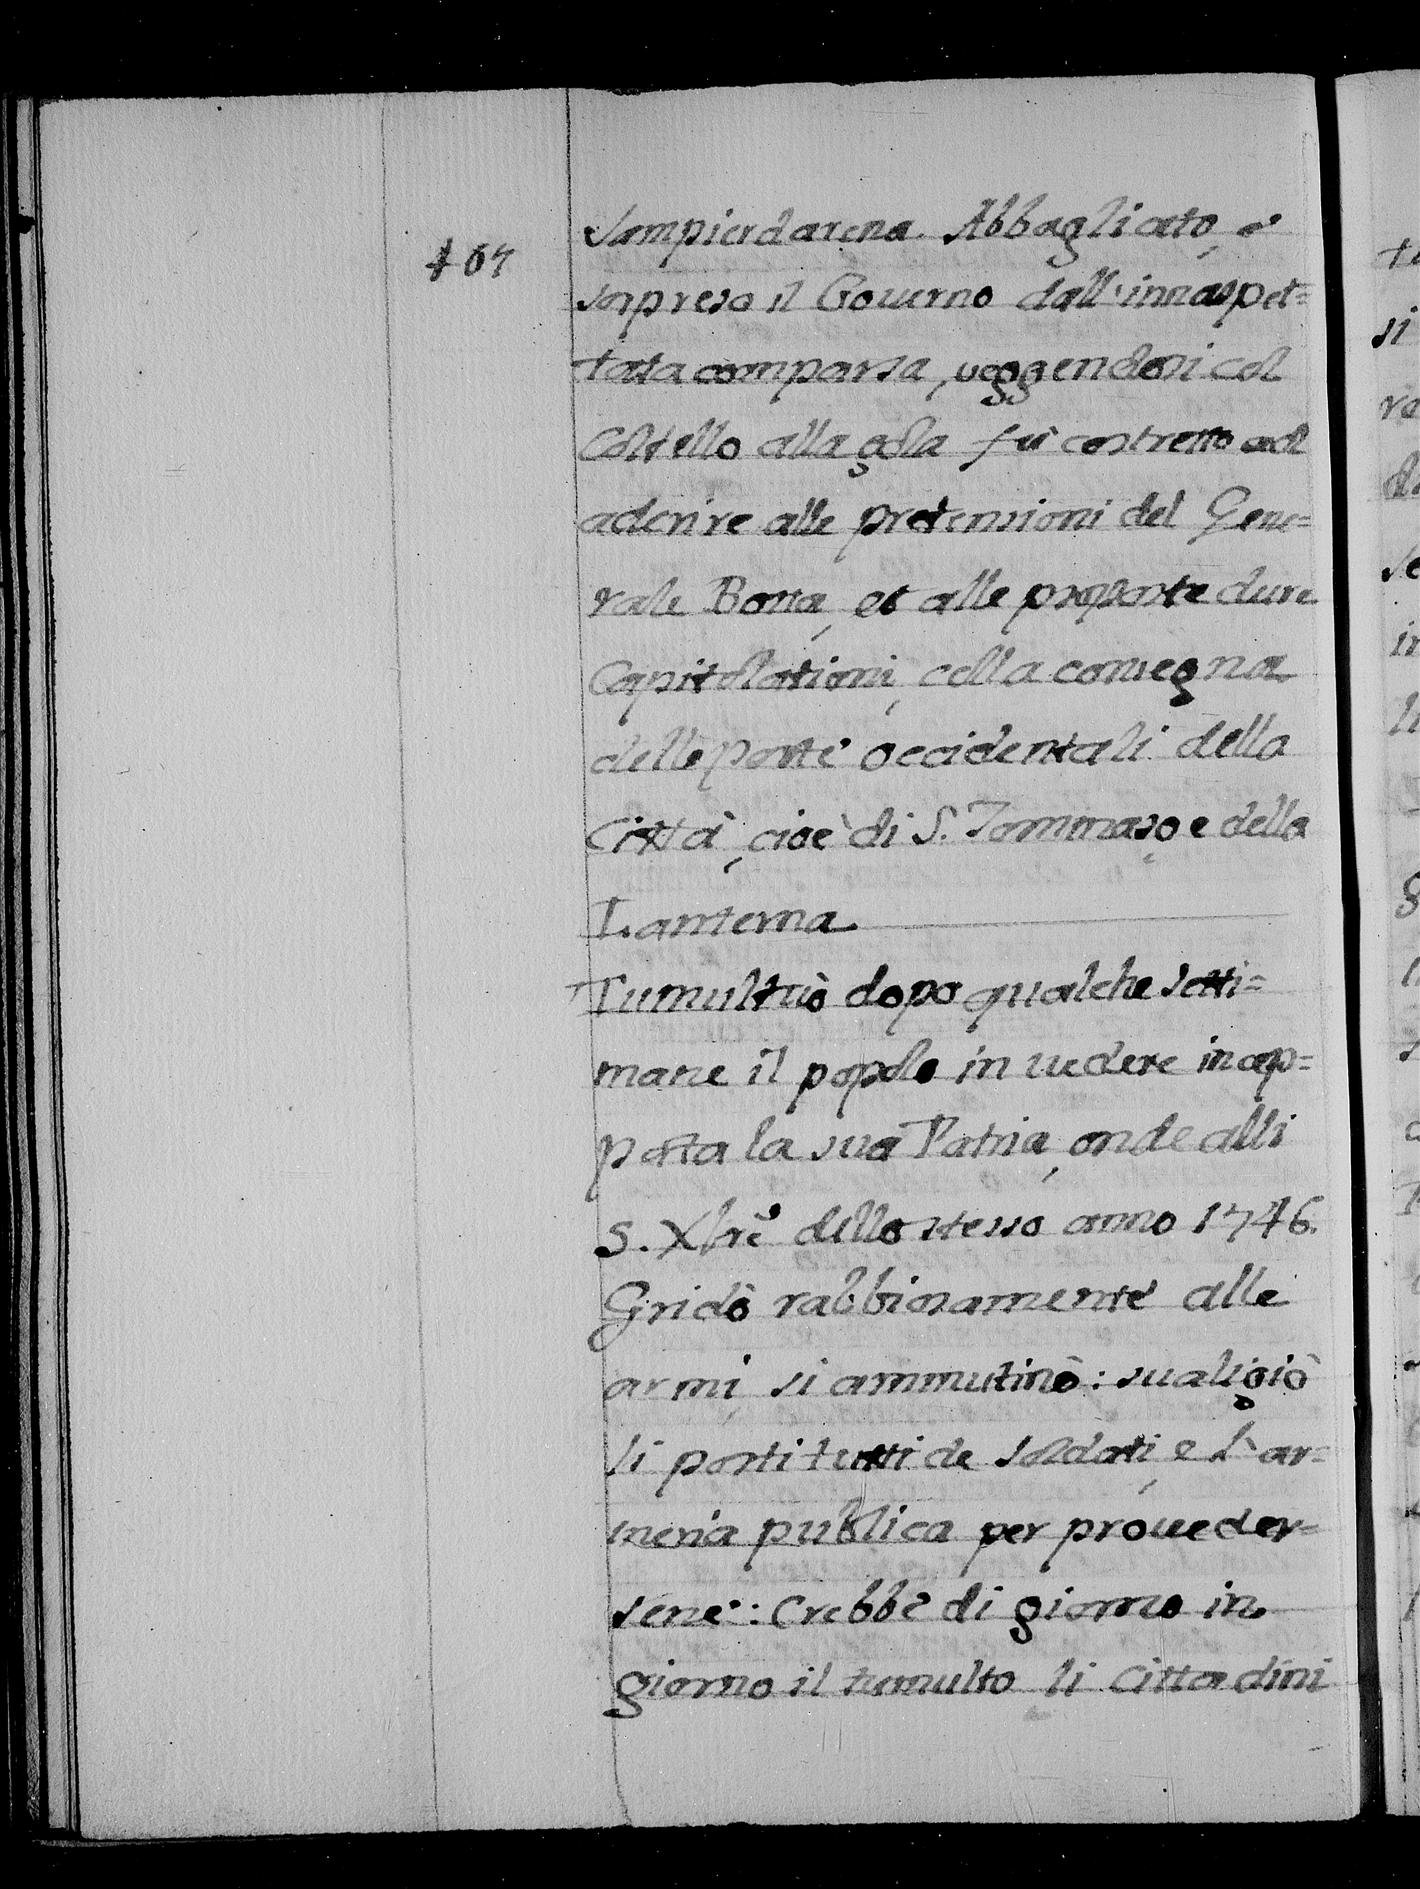 107
Sampierdarena. Abbagliato, e
sorpreso il Gouerno dall'innaspet=
tata comparsa, ueggendosi col
Coltello alla gola fù costretto ad
aderire alle pretensioni del Gene=
rale Botta, et alle proposte dure
Capitolationi, colla consegna
delle porte occidentali della
Città, cioè di S. Tommaso, e della
Lanterna.
Tumultuò dopo qualche setti=
mane il popolo in uedere incep=
pata la sua Patria, onde alli
5. Xbrè dello stesso anno 1746.
Gridò rabbiosamente alle
armi, si ammutinò: sualigiò
li posti tutti de soldati, e l'ar=
meria publica per proueder=
sene: Crebbe di giorno in
giorno il tumulto, li Cittadini